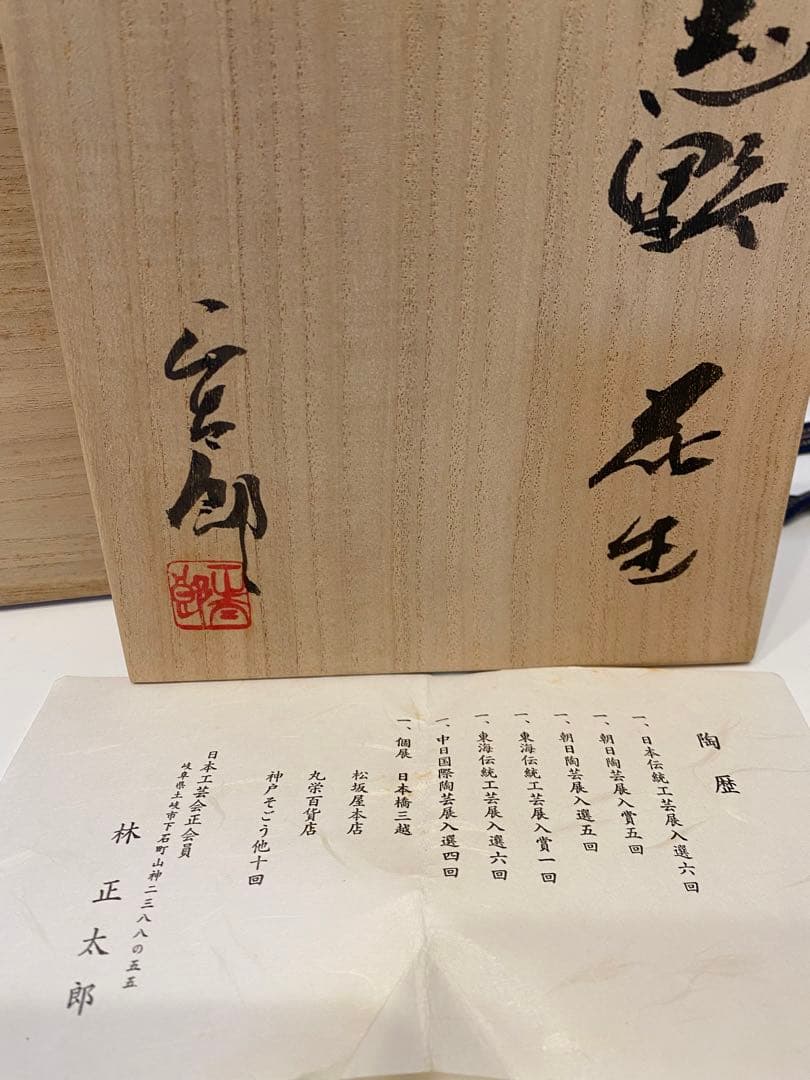 志野
花生
正太郎
正太郎
陶歴
一、日本伝統工芸展入選六回
一、朝日陶芸展入賞五回
一、朝日陶芸展入選五回
一、東海伝統工芸展入賞一回
一、東海伝統工芸展入選六回
一、中日国際陶芸展入選四回
一、個展 日本橋三越
松坂屋本店
丸栄百貨店
神戸そごう他十回
日本工芸会正会員
岐阜県土岐市下石町山神二三八八の五五
林正太郎